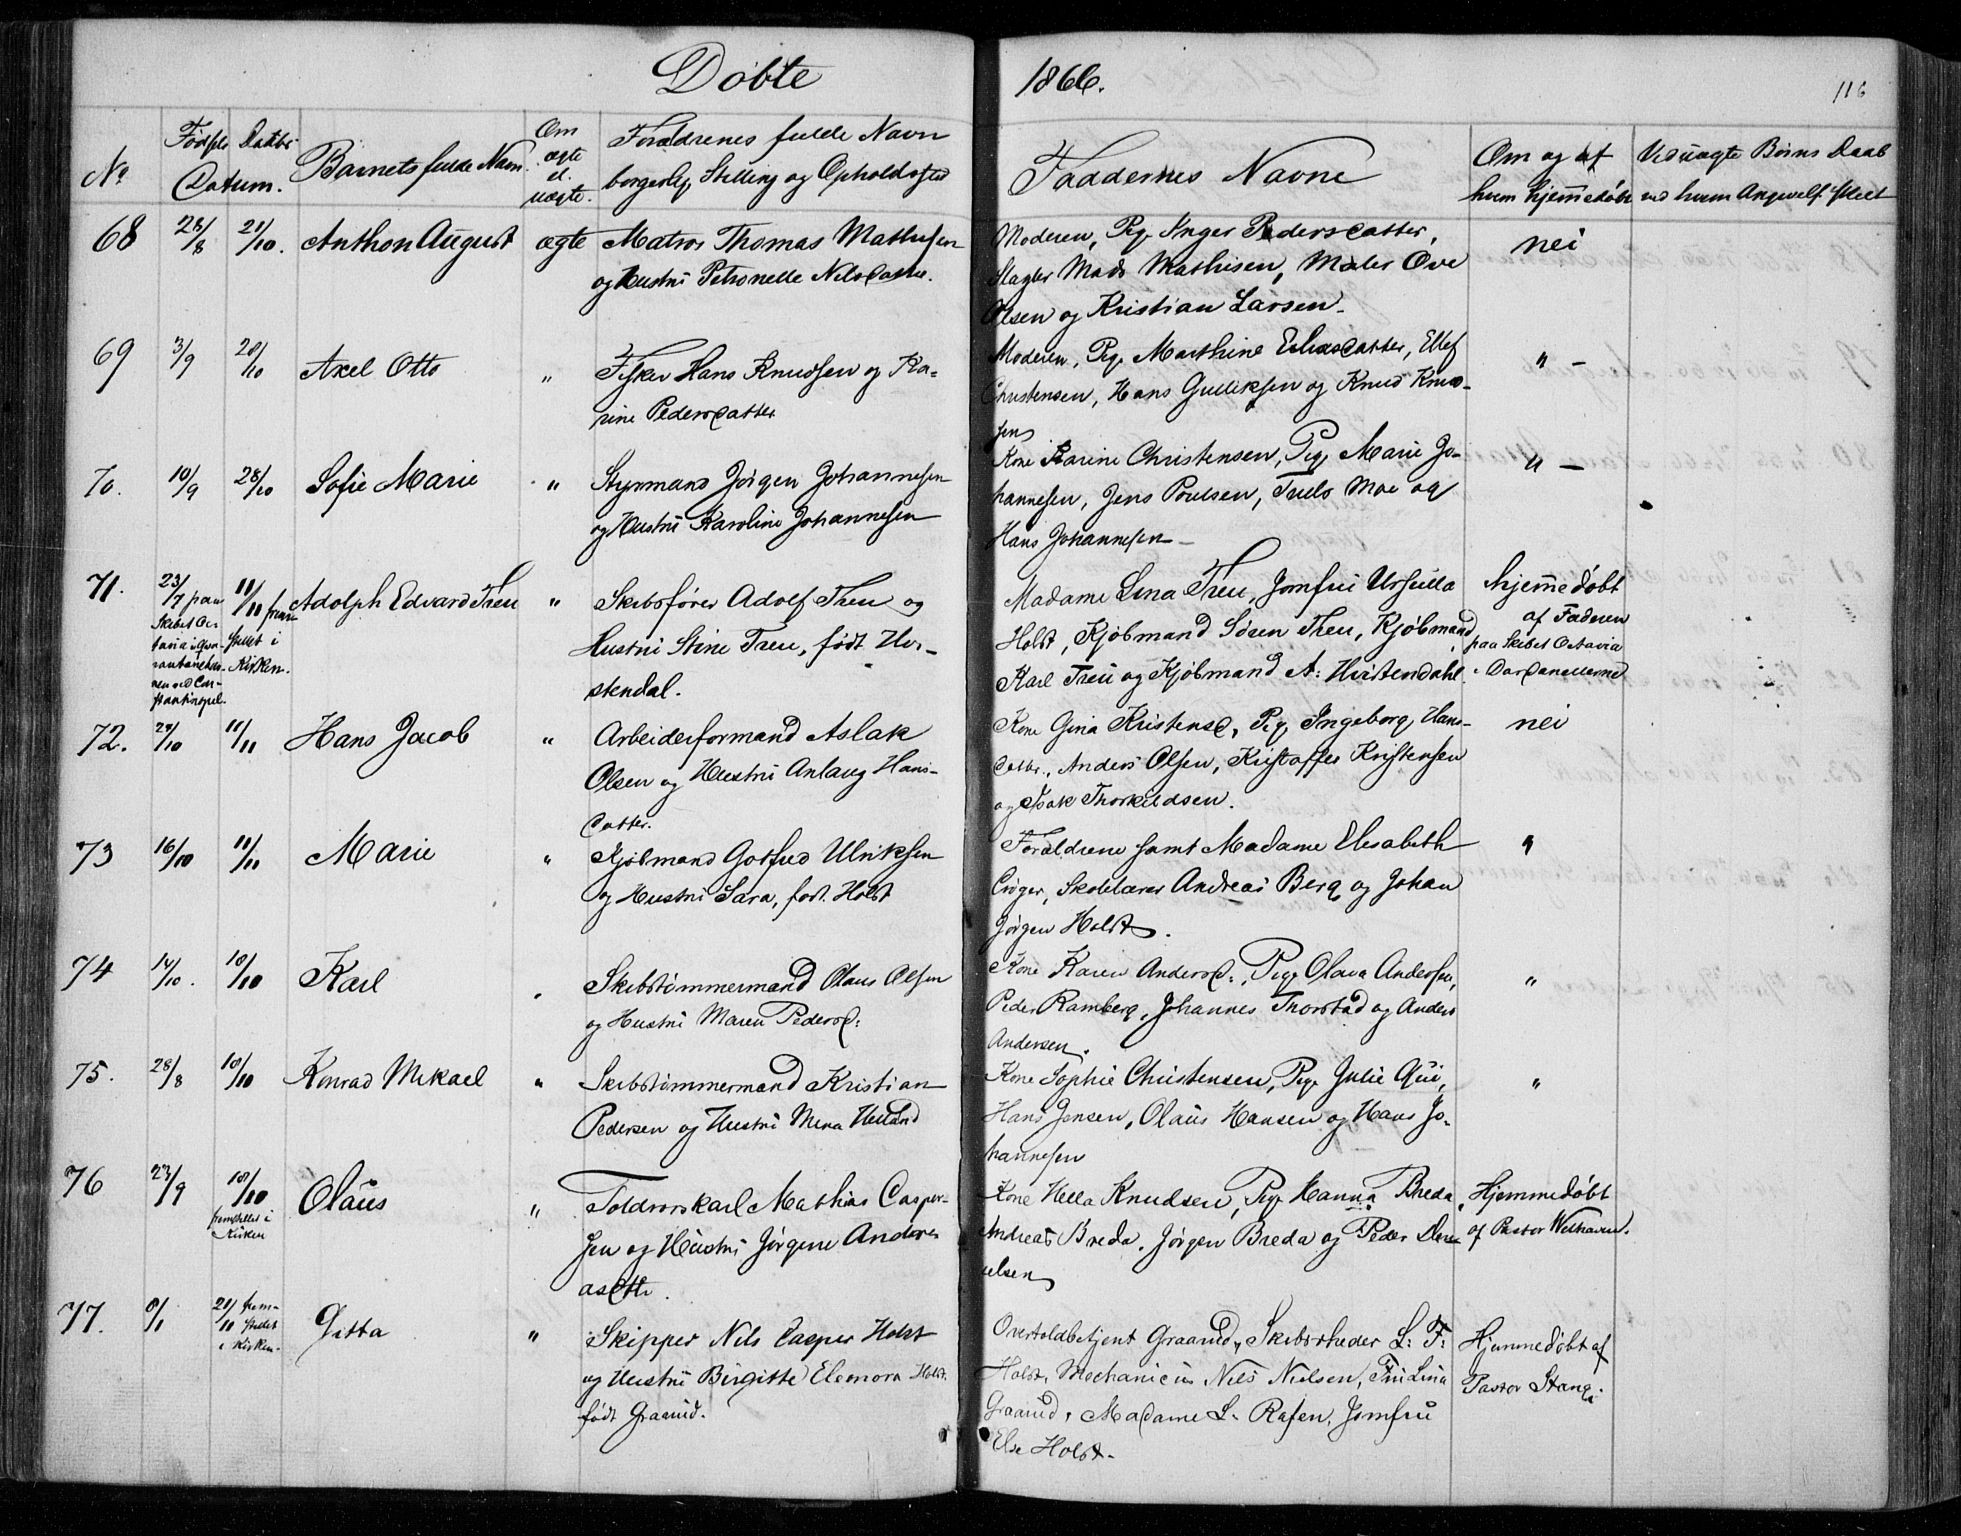 Døbte 1866.
116
No
Fødsels Daabs
Datum.
Barnets fulde Navn.
Om ægte el. uægte.
Forældrenes fulde Navn
borgerlig Stilling og Opholdssted
Faddernes Navne
Om og af
hvem hjemmedøbt
Ved uægte Børns Daab
ved hvem Angivelse skeet
68 28/8 21/10. Anthon August ægte Matros Thomas Mathisen
og Hustru Petronelle Nilsdatter.
Moderen, Pige Inger Pedersdatter,
Slagter Mads Mathisen, Maler Ove
Olsen og Kristian Larsen.
nei
69 3/9 28/10 Axel Otto " Fisker Hans Knudsen og Ka-
rine Pedersdatter
Moderen, Pige Marthine Eliasdatter, Ellef
Christensen, Hans Gulliksen og Knud Knud-
sen
" –
70. 10/9 28/10 Sofie Marie " Styrmand Jørgen Johannesen
og Hustru Karoline Johannesen
Kone Karine Christensen, Pige Marie Jo-
hannesen, Jens Poulsen, Truls Moe og
Hans Johannesen
" –
71. 23/7 paa Skibet Oc-
tavia
11/11 frem-
stillet i
Kirken.
Adolph Edvard Treu " Skibsfører Adolf Treu og
Hustru Stine Treu, født Hvi-
stendal.
Madame Lina Treu, Jomfru Ursulla
Holst, Kjøbmand Søren Treu, Kjøbmand
Karl Treu og Kjøbmand A: Hvistendahl.
hjemmedøbt
af Faderen
paa Skibet Octavia
i Dardanellerne
72. 24/10 11/11 Hans Jacob " Arbeiderformand Aslak
Olsen og Hustru Anlaug Hans-
datter.
Kone Gina Kristensd., Pige Ingeborg Hans-
datter., Anders Olsen, Kristoffer Kristensen
og Isak Thorkildsen.
nei
73 16/10 11/11 Marie " Kjøbmand Gotfred Ulriksen
og Hustru Sara, født Holst
Forældrene samt Madame Elisabeth
Crøger, Skolelærer Andreas Berg og Johan
Jørgen Holst.
"
74 14/10. 18/10 Karl " Skibstømmermand Olaus Olsen
og Hustru Maren Pedersd:
Kone Karen Andersd:, Pige Olava Andersen,
Peder Ramberg, Johannes Thorstad og Anders
Andersen.
"
75. 28/8 18/10 Konrad Mikael " Skibstømmermand Kristian
Pedersen og Hustru Mina Heiland
Kone Sophie Christensen, Pige Julie
Hans Jensen, Olaus Hansen og Hans Jo-
hannesen
"
76 23/9 18/10
fremstillet i
Kirken
Olaus " Toldrorskarl Mathias Casper-
sen og Hustru Jørgine Andere-
asdtr.
Kone Hella Knudsen, Pige Hanna Breda,
Andreas Breda, Jørgen Breda og Peder Dani-
elsen
Hjemmedøbt
af Pastor Welhaven.
77. 8/1 21/11 frem-
stillet
i Kirken.
Gitta " Skipper Nils Casper Holst
og Hustru Birgitte Eleonora Holst.
født Graarud.
Overtoldbetjent Graarud, Skibsrheder L: F:
Holst, Mechanicus Nils Nielsen, Fru Lina
Graarud, Madame L. Rasen, Jomfru
Else Holst.
Hjemmedøbt af
Pastor Stang.